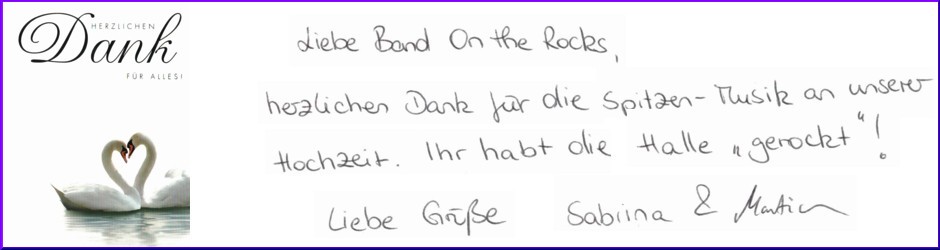 HERZLICHEN
Dank
FÜR ALLES!
Liebe Band On the Rocks,
herzlichen Dank für die Spitzen-Musik an unserer
Hochzeit. Ihr habt die Halle „gerockt“!
Liebe Grüße Sabrina & Martin